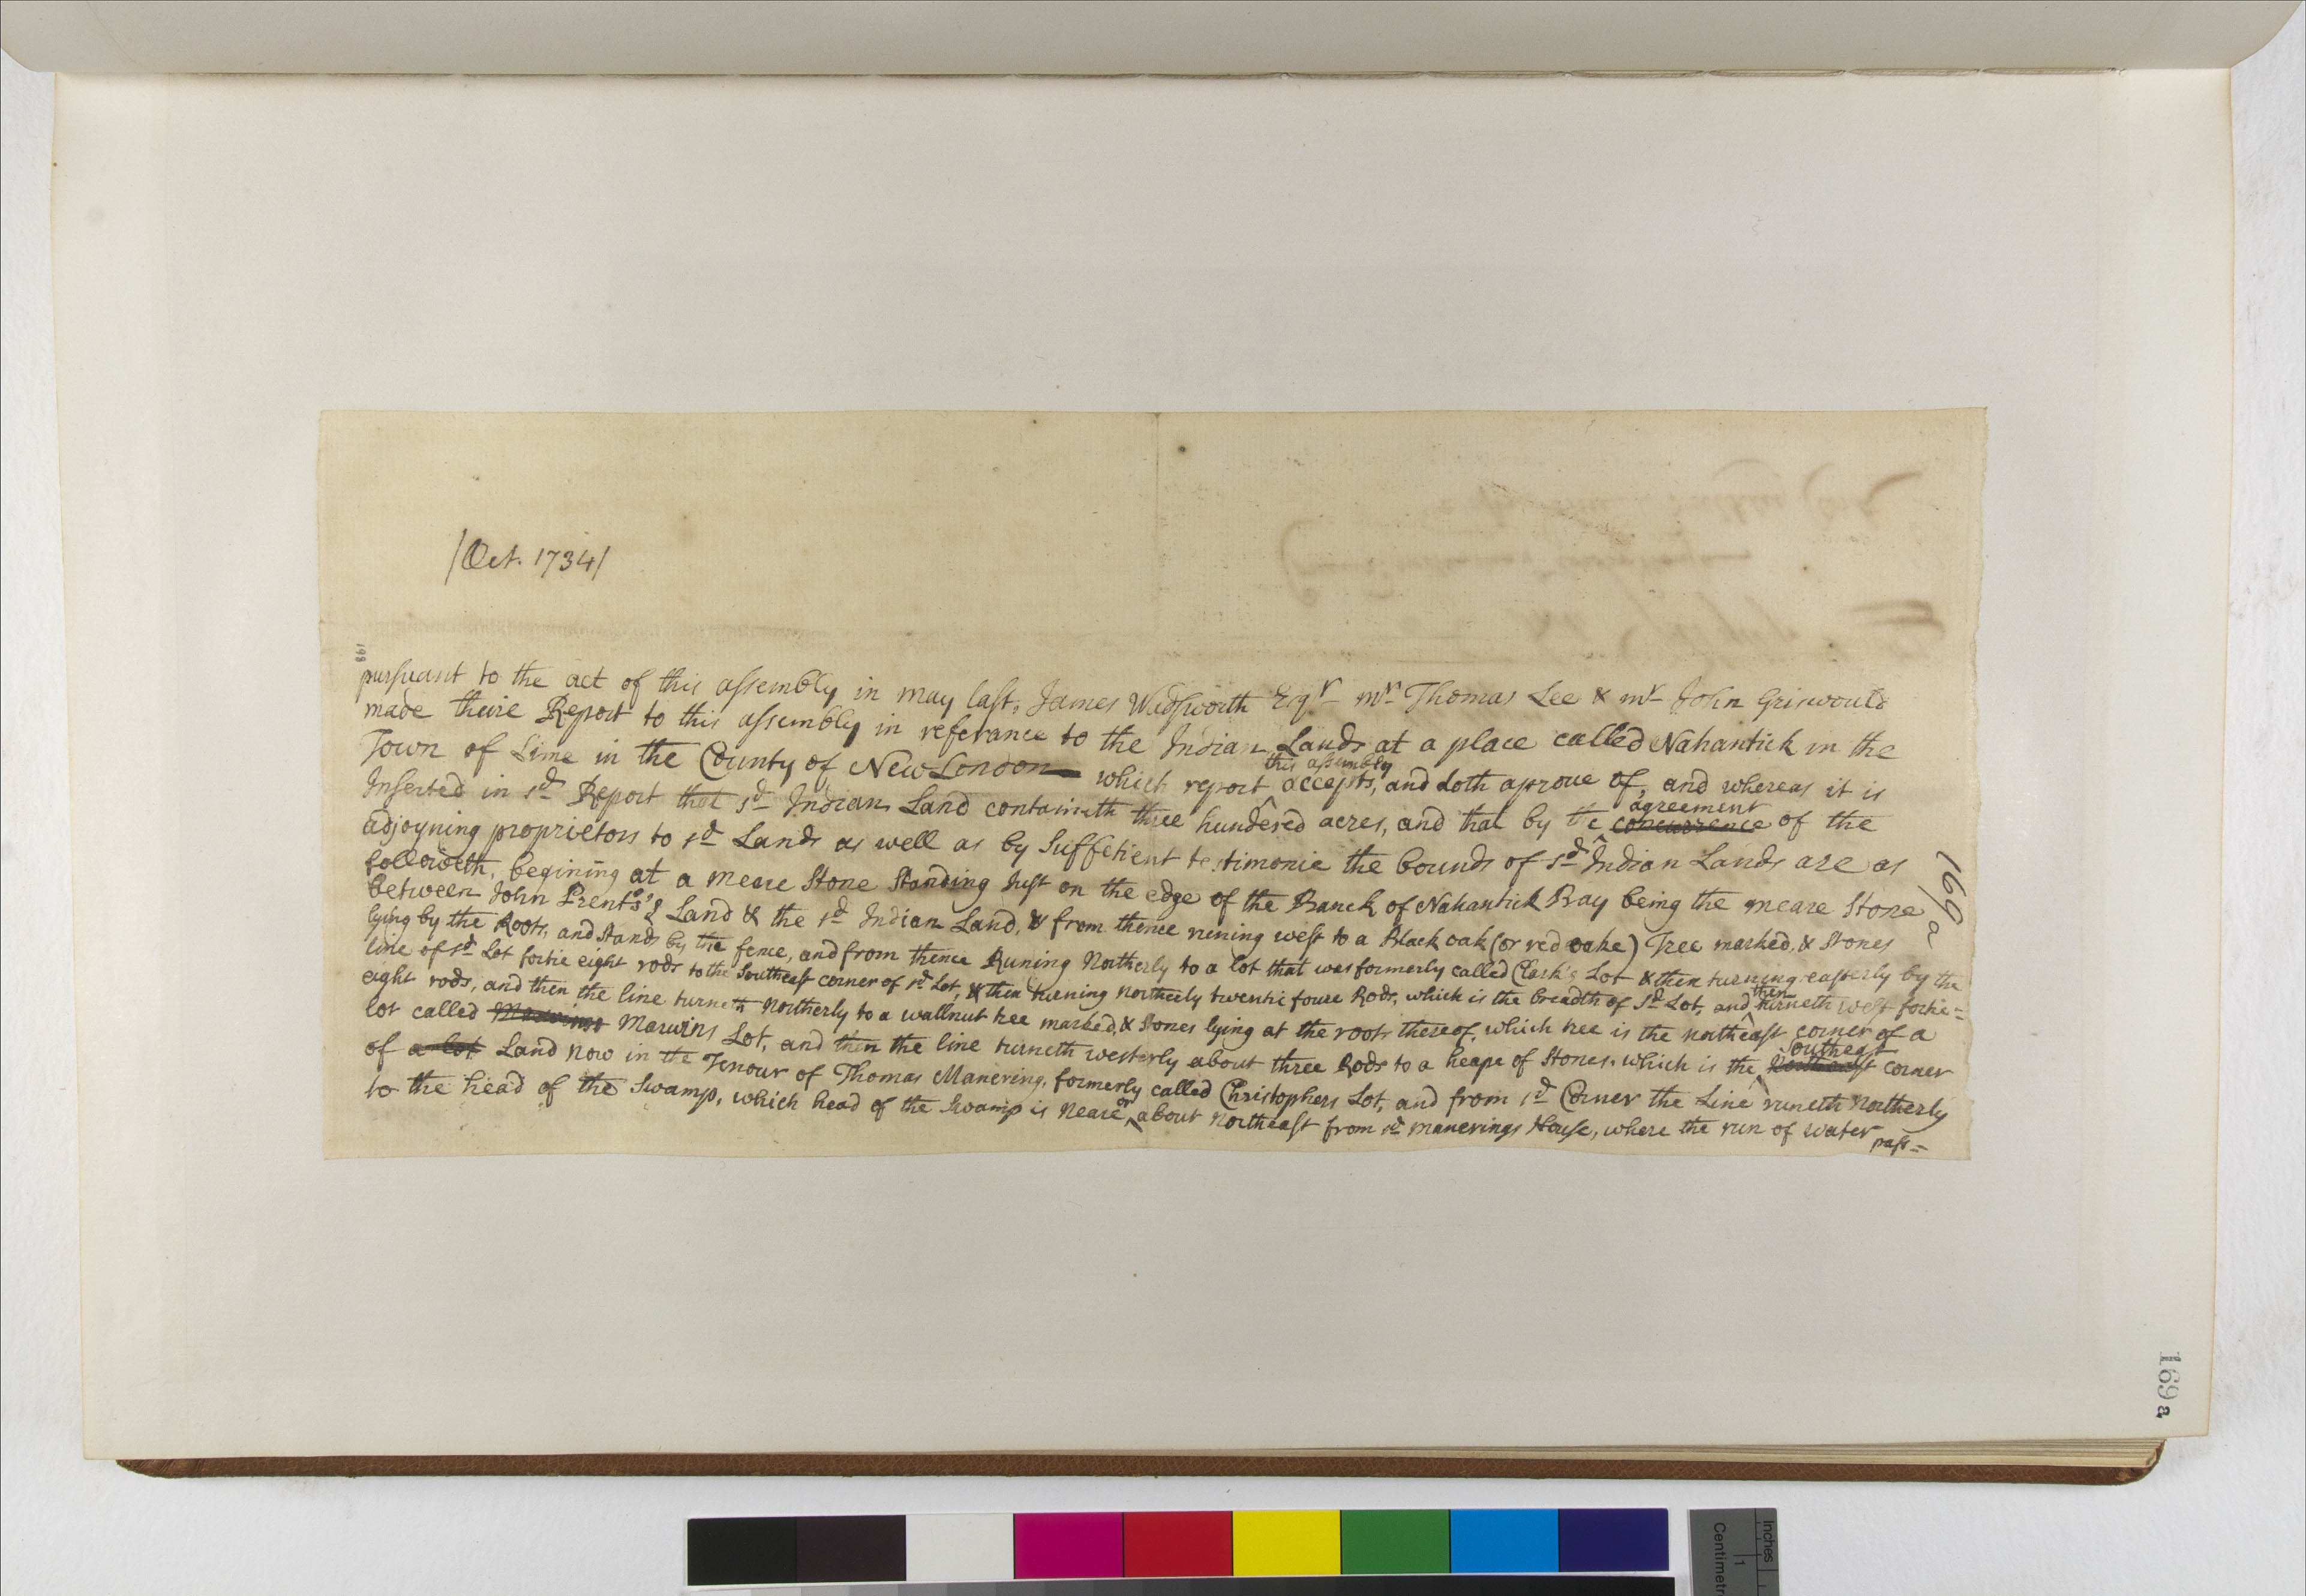 /Oct. 1734/
169
pursuant to the act of this assembly in may last, James Wadsworth Esqr mr Thomas Lee & mr John Griswould
made theire Report to this assembly in referance to the Indian Lands at a place called Nahantick in the
Town of Lime in the County of New London which report this assembly accepts, and doth aproue of, and whereas it is
Inserted in sd Report that sd Indian Land containeth three hundered acres, and that by the concurrence agreement of the
adjoyning proprietors to sd Lands as well as by Suffetient testimonie the bounds of sd Indian Lands are as
followeth, begining at a meare Stone Standing Just on the edge of the Banck of Nahantick Bay being the meare Stone
between John Prents's Land & the sd Indian Land, & from thence runing west to a Black oak (or red oake) Tree marked, & Stones
lying by the Roots, and Stands by the fence, and from thence Runing Northerly to a lot that was formerly called Clark's Lot & then turning easterly by the
line of sd Lot fortie eight rods to the Southeast corner of sd Lot, & then turning northerly twentie foure Rods, which is the breadth of sd Lot, and then turneth west fortie=
eight rods, and then the line turneth Northerly to a wallnut tree marked, & Stones lying at the roots thereof, which tree is the northeast corner of a
lot called Marwins Lot, and then the line turneth westerly about three Rods to a heape of Stones, which is the Southeast corner
of a lot Land now in the Tenour of Thomas Manering, formerly called Christophers Lot, and from sd Corner the Line runeth Northerly
to the head of the Swamp, which head of the Swamp is neare or about northeast from sd manerings House, where the run of water
pass=
169 a
169 a
Inches
1
Centimetr